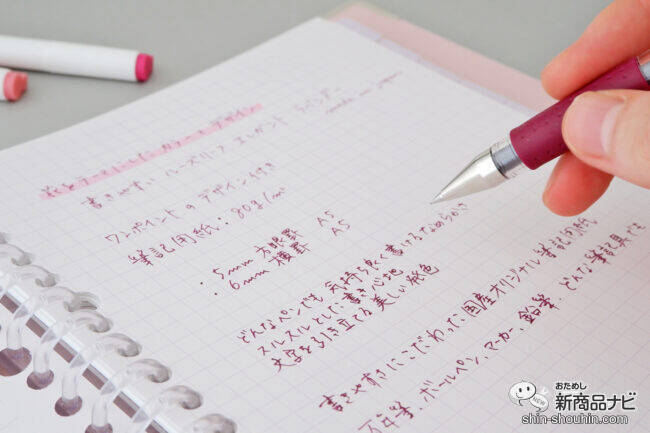 書きやすい ルーズリーフ エレガント バインダー
made in Japan
ワンポイントのデザイン付き
筆記用紙・80g/m²
・5mm 方眼罫 A5
・6mm 横罫 A5
どんなペンでも気持ち良く書けるなめらかさ
スルスルとした書き心地
文字を引き立てる美しい紙色
書きやすさにこだわった国産オリジナル筆記用紙
万年筆、ボールペン、マーカー、鉛筆、どんな筆記具でも
おためし
新商品ナビ
shin-shouhin.com
NEW